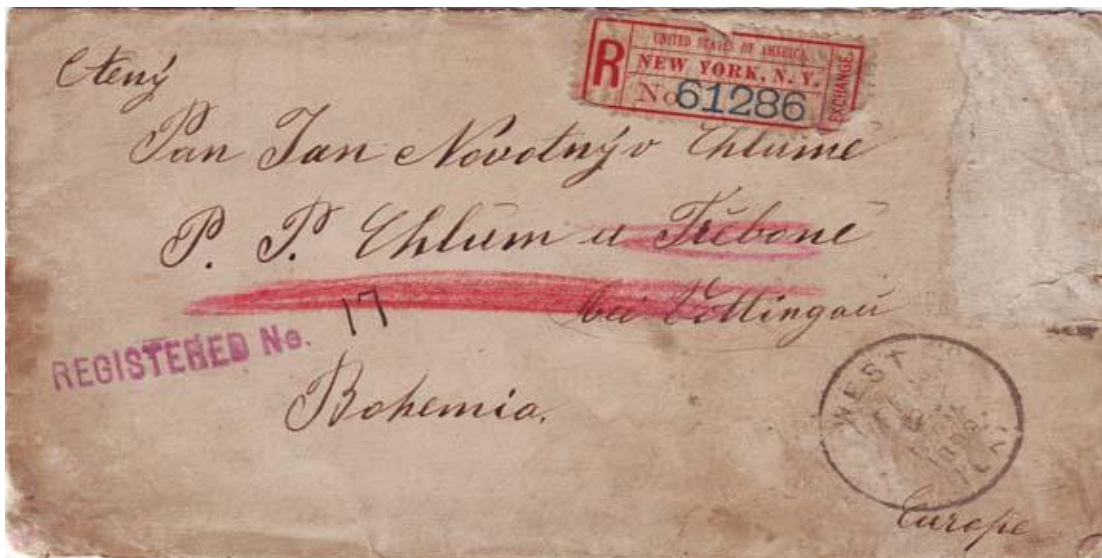 Ctený
UNITED STATES OF AMERICA
R NEW YORK, N. Y.
No 61286
EXCHANGE
Pan Jan Novotný v Chlumě
P. P. Chlum u Třeboně
bei Vittingaŭ
REGISTERED No. 17
Bohemia.
WEST
Europe